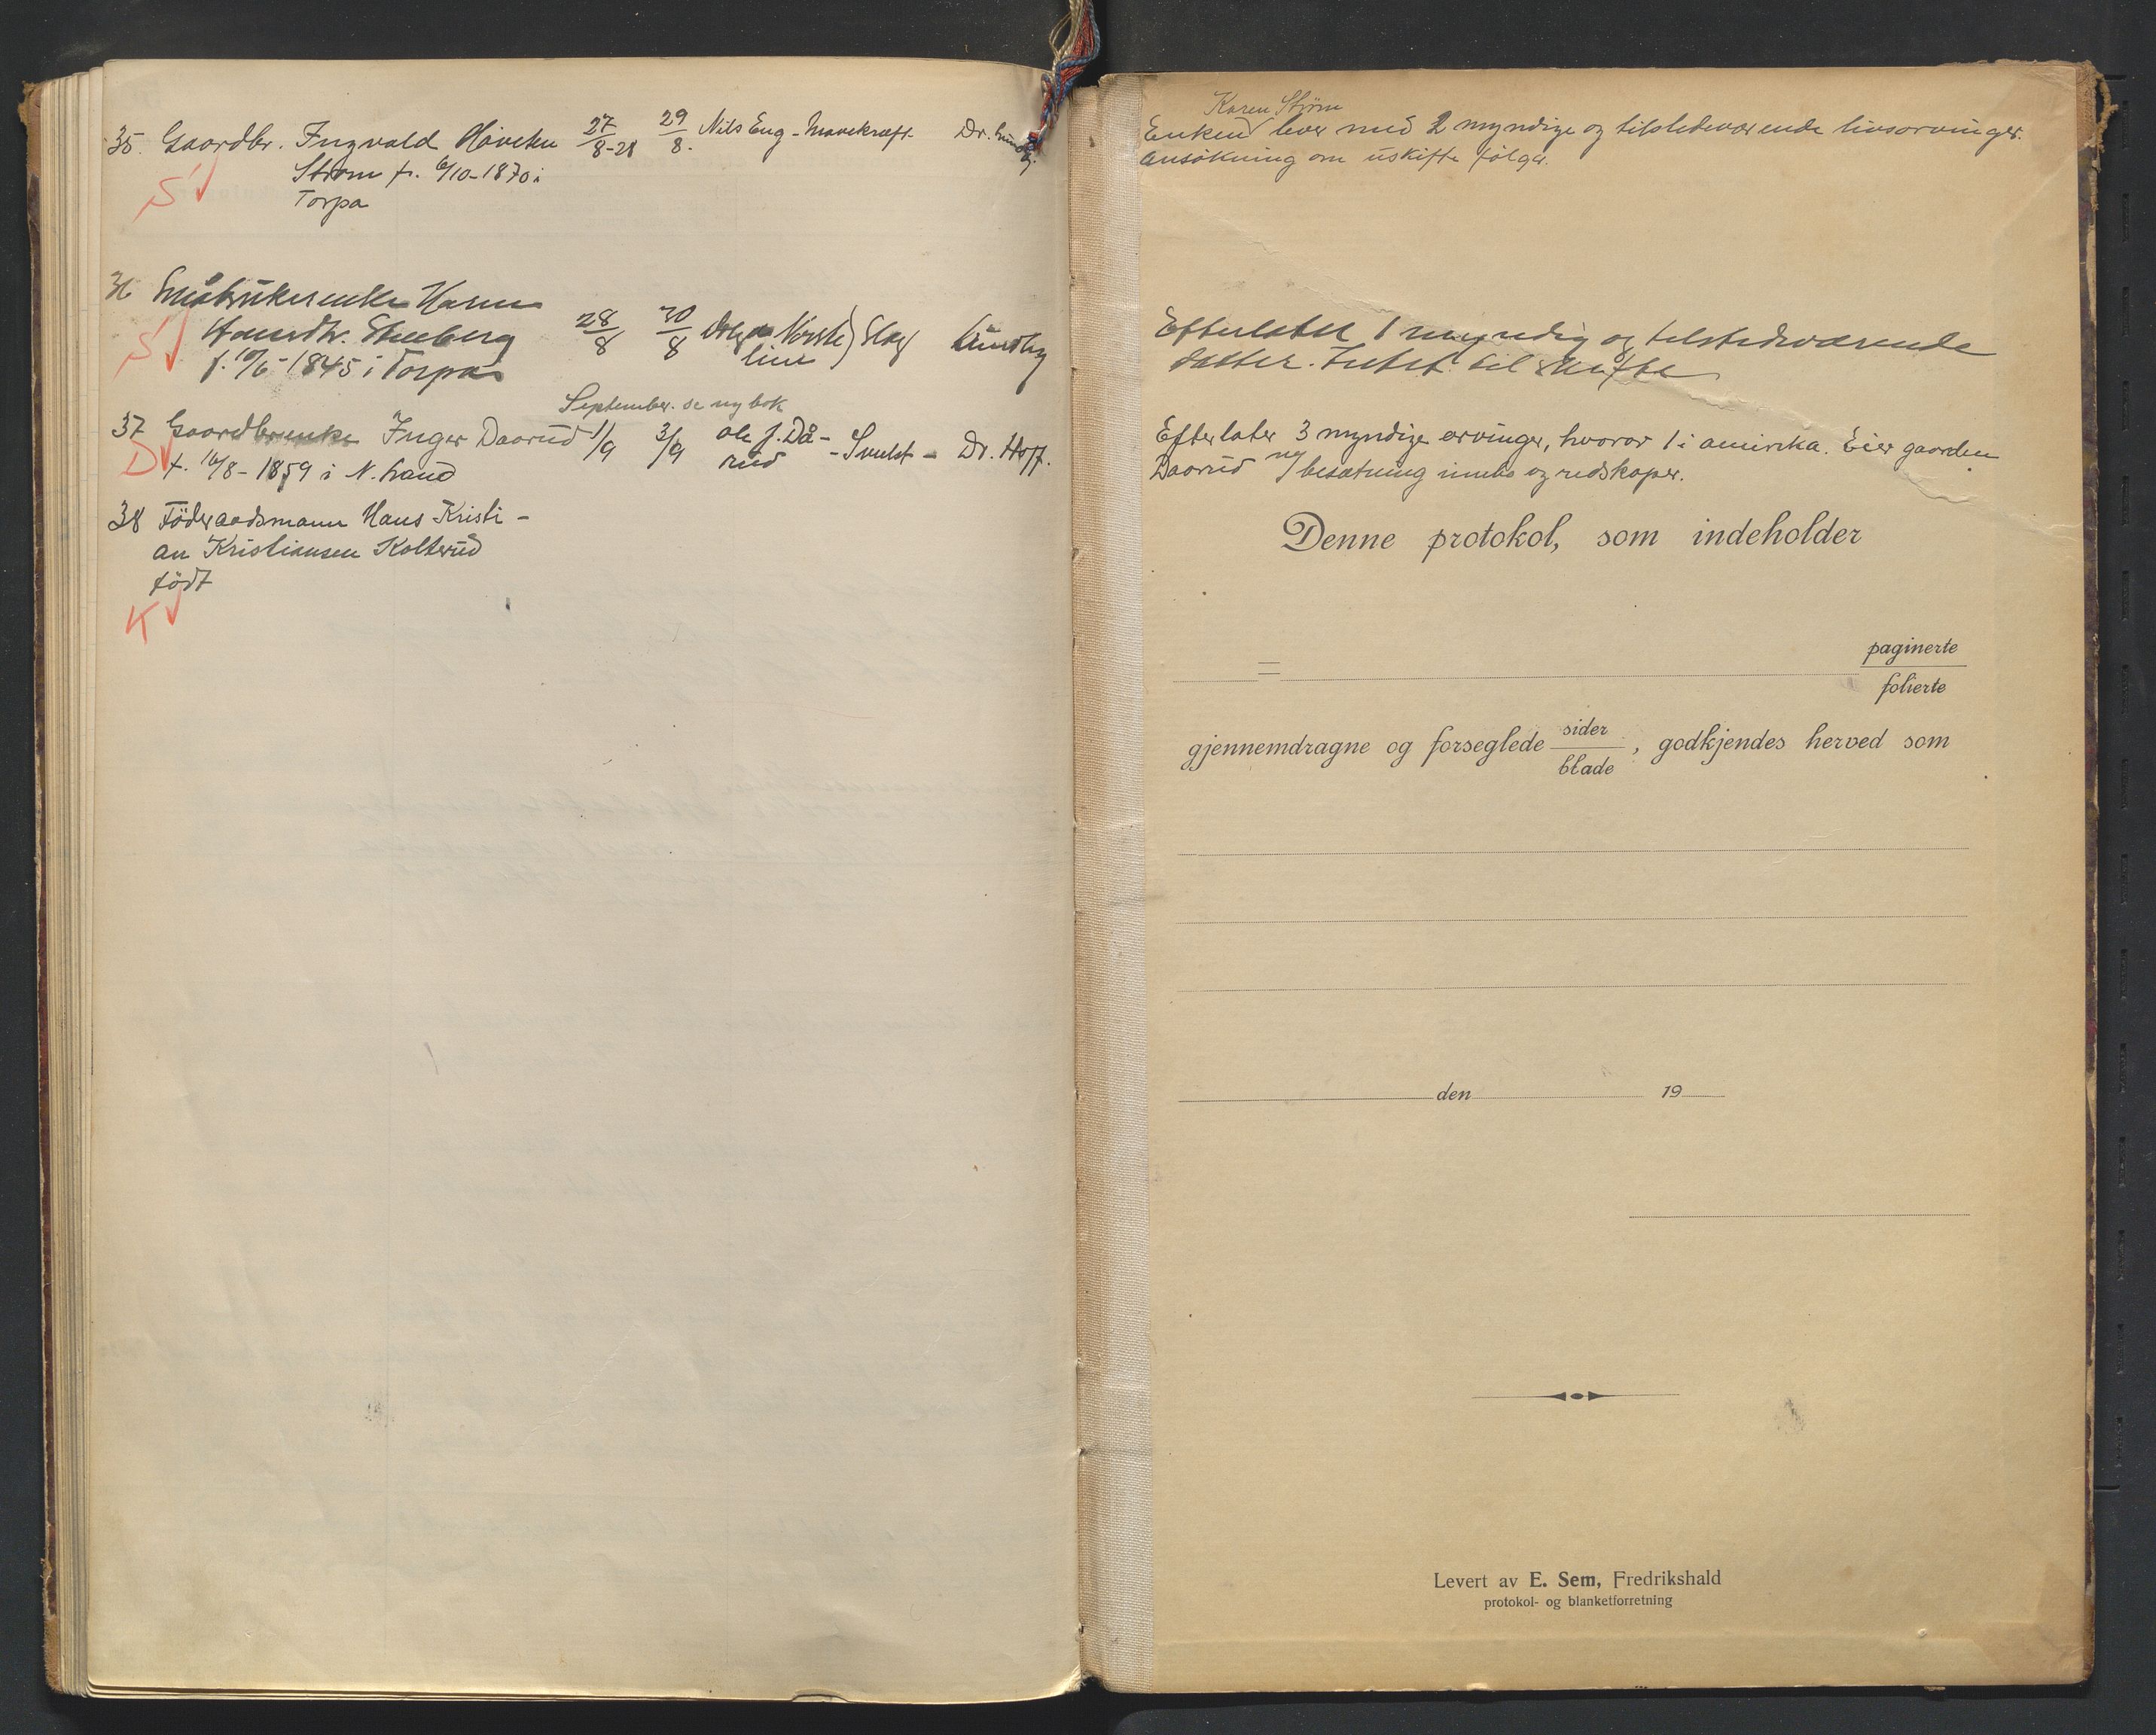 35. Gaardbr. Ingvald Höveten 27/8-28 29/8. Nils Eng - Mavekræft. Dr. Lundby.
Strøm f. 6/10-1870 i
Torpa
S
36 Småbrukerenke Karen
Hansdtr. Stenberg 28/8 30/8 Slag Lundby
f. 10/6-1845 i Torpa
S
September. se ny bok
37 Gaardbrenke Inger Daarud 1/9 3/9 Ole J. Då- - Svulst - Dr. Hoff.
rud
f. 16/8-1859 i N. Land
D
38 Föderaadsmann Hans Kristi-
an Kristiansen Kolterud
född
K
Karen Strøm
Enken lever med 2 myndige og tilstedeværende livsarvinger.
Ansökning om uskifte følger.
Efterlater 1 myndig og tilstedeværende
datter. Intet til skifte
Efterlater 3 myndige arvinger, hvorav 1 i amerika. Eier gaarden
Daarud m/ besætning innbo og redskaper.
Denne protokol, som indeholder
=
paginerte
folierte
gjennemdragne og forseglede sider/blade, godkjendes herved som
den 19
Levert av E. Sem, Fredrikshald
protokol- og blanketforretning